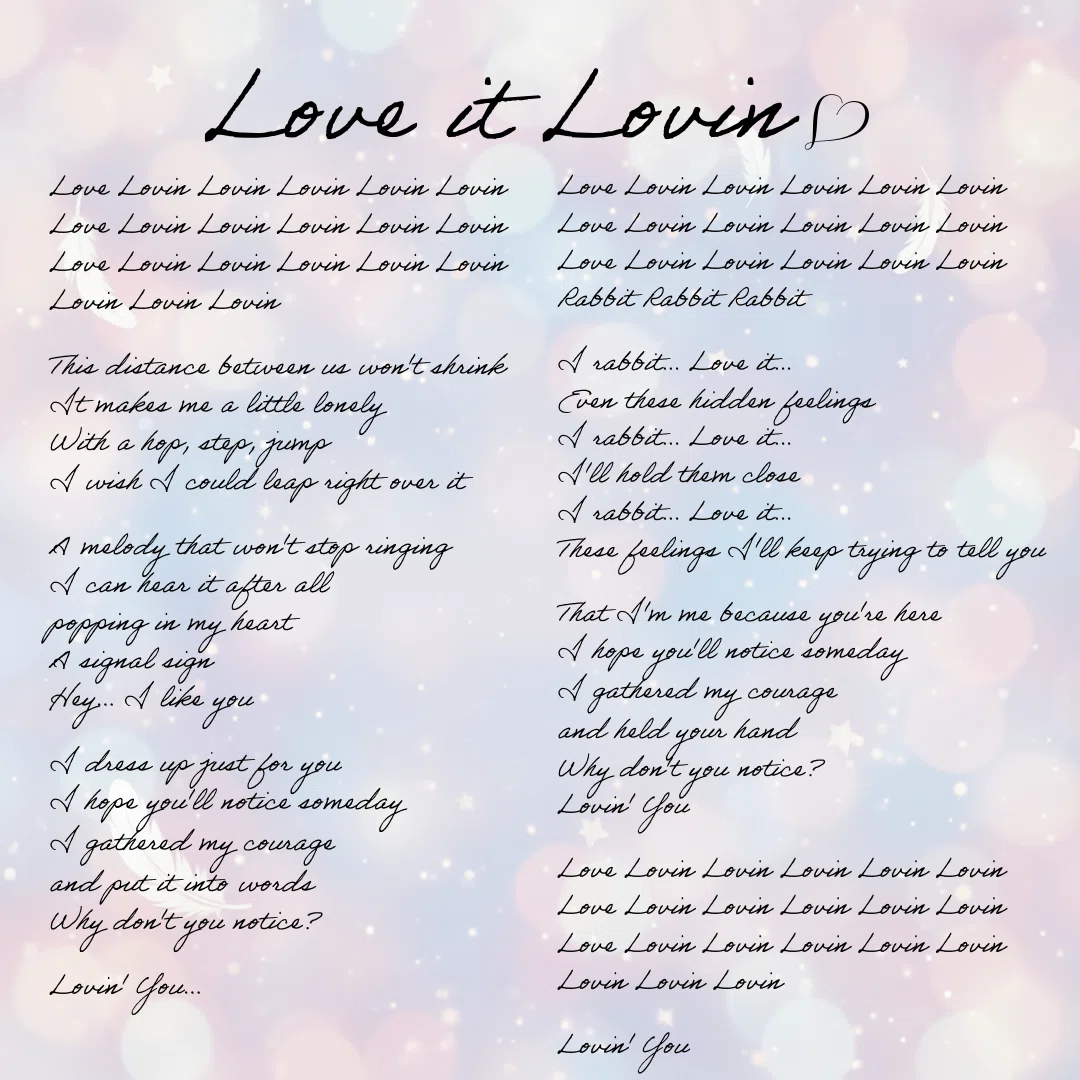 Love it Lovin
Love Lovin Lovin Lovin Lovin Lovin
Love Lovin Lovin Lovin Lovin Lovin
Love Lovin Lovin Lovin Lovin Lovin
Lovin Lovin Lovin
This distance between us won't shrink
It makes me a little lonely
With a hop, step, jump
I wish I could leap right over it
A melody that won't stop ringing
I can hear it after all
popping in my heart
A signal sign
Hey... I like you
I dress up just for you
I hope you'll notice someday
I gathered my courage
and put it into words
Why don't you notice?
Lovin' You...
Love Lovin Lovin Lovin Lovin Lovin
Love Lovin Lovin Lovin Lovin Lovin
Love Lovin Lovin Lovin Lovin Lovin
Rabbit Rabbit Rabbit
I rabbit... Love it...
Even these hidden feelings
I rabbit... Love it...
I'll hold them close
I rabbit... Love it...
These feelings I'll keep trying to tell you
That I'm me because you're here
I hope you'll notice someday
I gathered my courage
and held your hand
Why don't you notice?
Lovin' You
Love Lovin Lovin Lovin Lovin Lovin
Love Lovin Lovin Lovin Lovin Lovin
Love Lovin Lovin Lovin Lovin Lovin
Lovin Lovin Lovin
Lovin' You